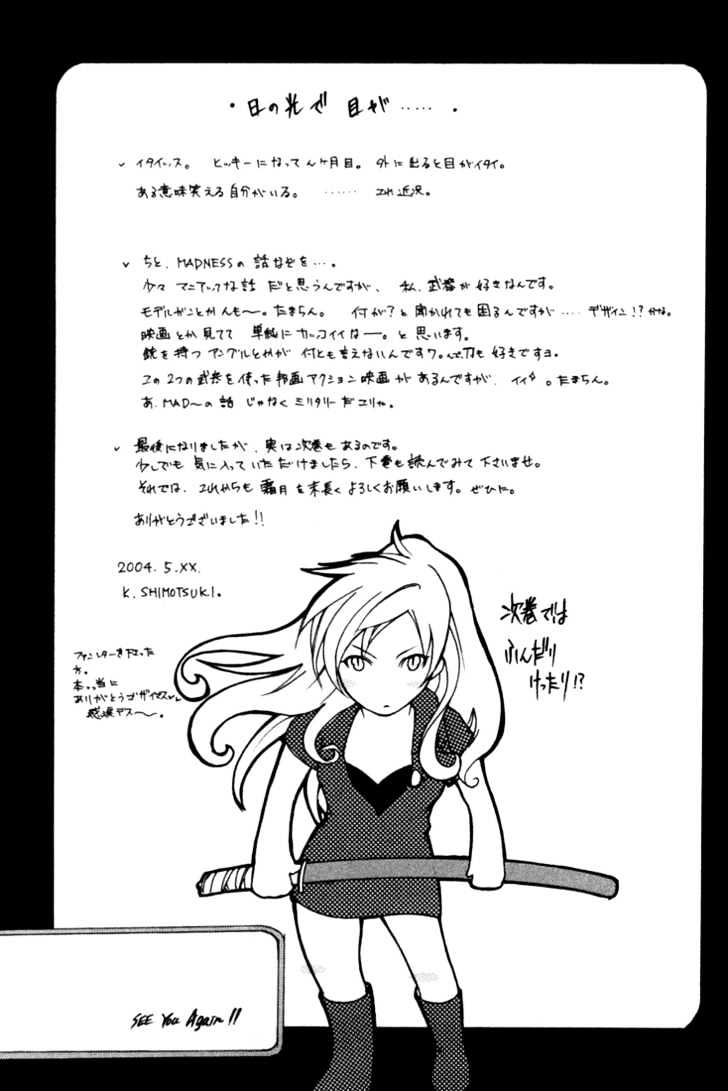 ・日の光で 目が……．
✓ イタイッス。 ヒッキーになってんヶ月目。外に出ると目がイタイ。
ある意味笑える自分がいる。 …… これ近況。
✓ ちと、MADNESSの 話なぞを…。
少々 マニアックな話 だと思うんですが、 私、武器が好きなんです。
モデルガンとかんも〜。たまらん。 何が?と 聞かれても困るんですが…. デザイン!?かな。
映画とか見てて 単純にカッコイイなー。と 思います。
銃を持つ アングルとかが 何とも言えないんですワ。んで刀も好きですヨ。
この2つの武器を使った邦画アクション映画があるんですが、イイ。たまらん。
あ、MAD〜の話 じゃなく ミリタリーだこりゃ。
✓ 最後になりましたが、実は次巻もあるのです。
少しでも 気に入っていただけましたら、下巻も読んでみて下さいませ。
それでは、これからも 霜月を末長くよろしくお願いします。ぜひに。
ありがとうございました!!
2004. 5.XX.
K. SHIMOTSUKI.
次巻では
ふんだり
けったり!?
ファンレターを下さった
方。
本っ当に
ありがとうゴザイマス
感涙デス〜。
SEE You Again!!